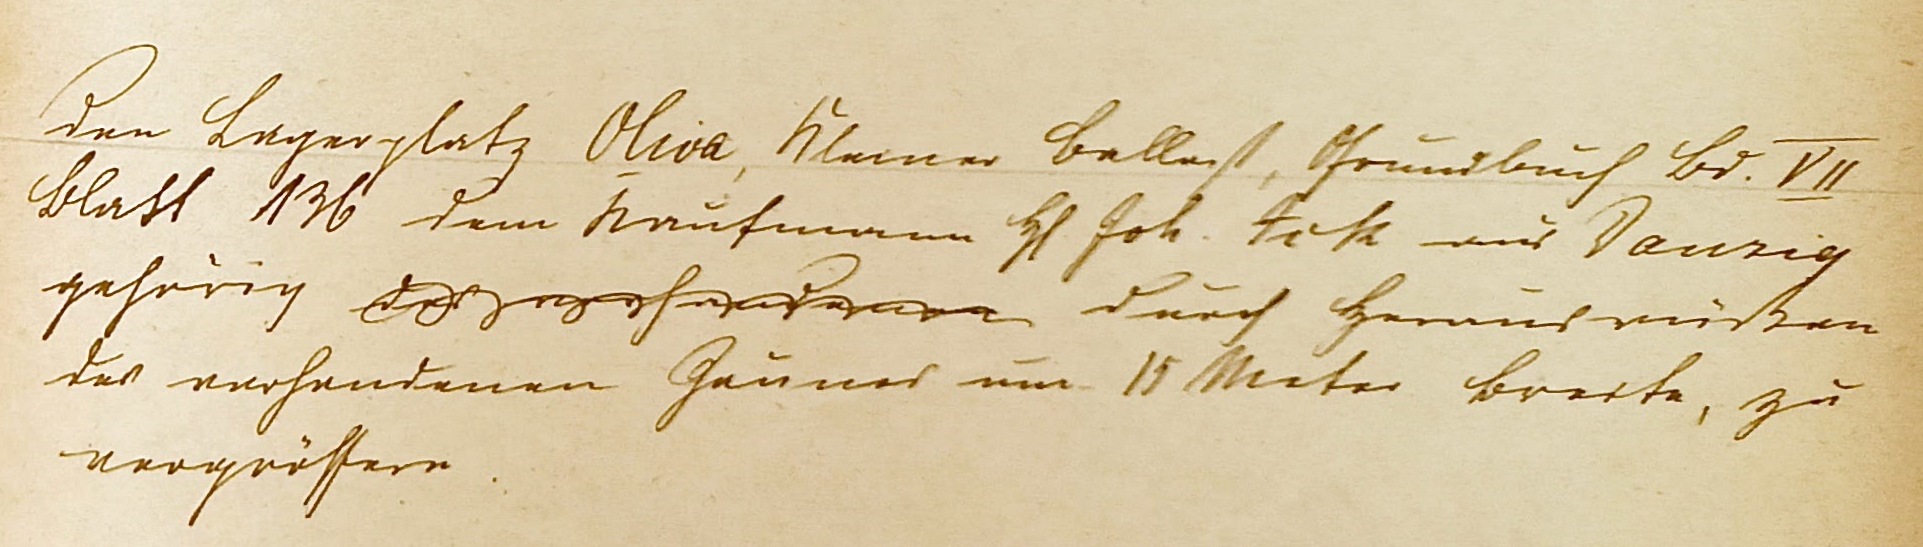 den Lagerplatz Oliva, Kleiner Ballast, Grundbuch Bd. VII
Blatt 136 dem Kaufmann H. Joh. Ick aus Danzig
gehörig des vorhandenen durch Herausrücken
des vorhandenen Zaunes um 15 Meter Breite, zu
vergrössern.